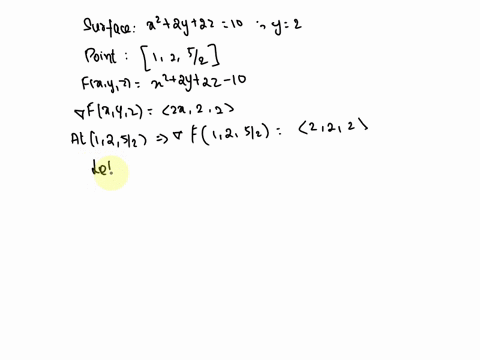 Surface: x²+2y+2z=10 ; y=2
Point: [1, 2, 5/2]
F(x,y,z)= x²+2y+2z-10
∇F(x,y,z)= <2x, 2, 2>
At (1,2,5/2) => ∇ F(1,2,5/2) = <2,2,2>